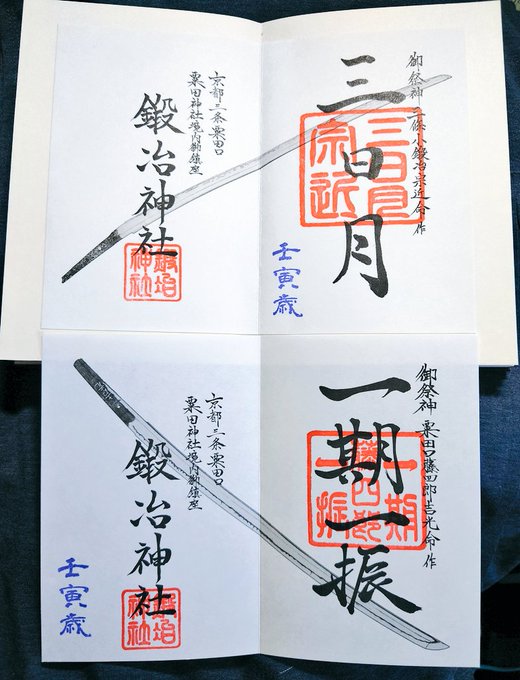 御祭神 三條小鍛冶宗近命 作
三日月
三日月
宗近
壬寅歳
京都三条粟田口
粟田神社境内御鎮座
鍛冶神社
鍛冶
神社
御祭神 粟田口藤四郎吉光命 作
一期一振
一期
藤四郎
一振
京都三条粟田口
粟田神社境内御鎮座
鍛冶神社
鍛冶
神社
壬寅歳